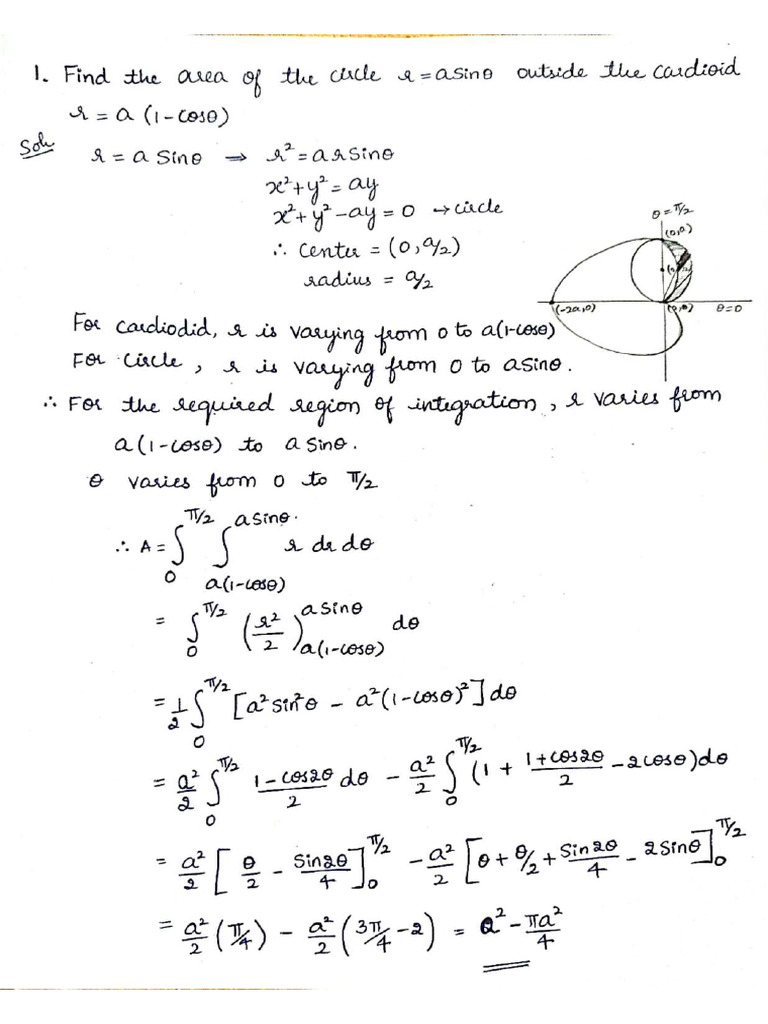 1. Find the area of the circle r = a sinθ outside the cardioid
r = a (1-cosθ)
Soln r = a sinθ ⇒ r² = a r sinθ
x²+y² = ay
x²+y²-ay = 0 → circle
∴ Center = (0, a/2)
radius = a/2
θ = π/2
(-2a,0)
(0,0)
θ=0
For cardiodid, r is varying from 0 to a(1-cosθ)
For circle, r is varying from 0 to a sinθ.
∴ For the required region of integration, r varies from
a(1-cosθ) to a sinθ.
θ varies from 0 to π/2
∴ A = ∫₀^{π/2} ∫_{a(1-cosθ)}^{a sinθ} r dr dθ
= ∫₀^{π/2} (r²/2)_{a(1-cosθ)}^{a sinθ} dθ
= 1/2 ∫₀^{π/2} [a² sin²θ - a²(1-cosθ)²] dθ
= a²/2 ∫₀^{π/2} (1-cos2θ)/2 dθ - a²/2 ∫₀^{π/2} (1 + (1+cos2θ)/2 - 2cosθ) dθ
= a²/2 [θ/2 - sin2θ/4]₀^{π/2} - a²/2 [θ + θ/2 + sin2θ/4 - 2sinθ]₀^{π/2}
= a²/2 (π/4) - a²/2 (3π/4 - 2) = a² - πa²/4